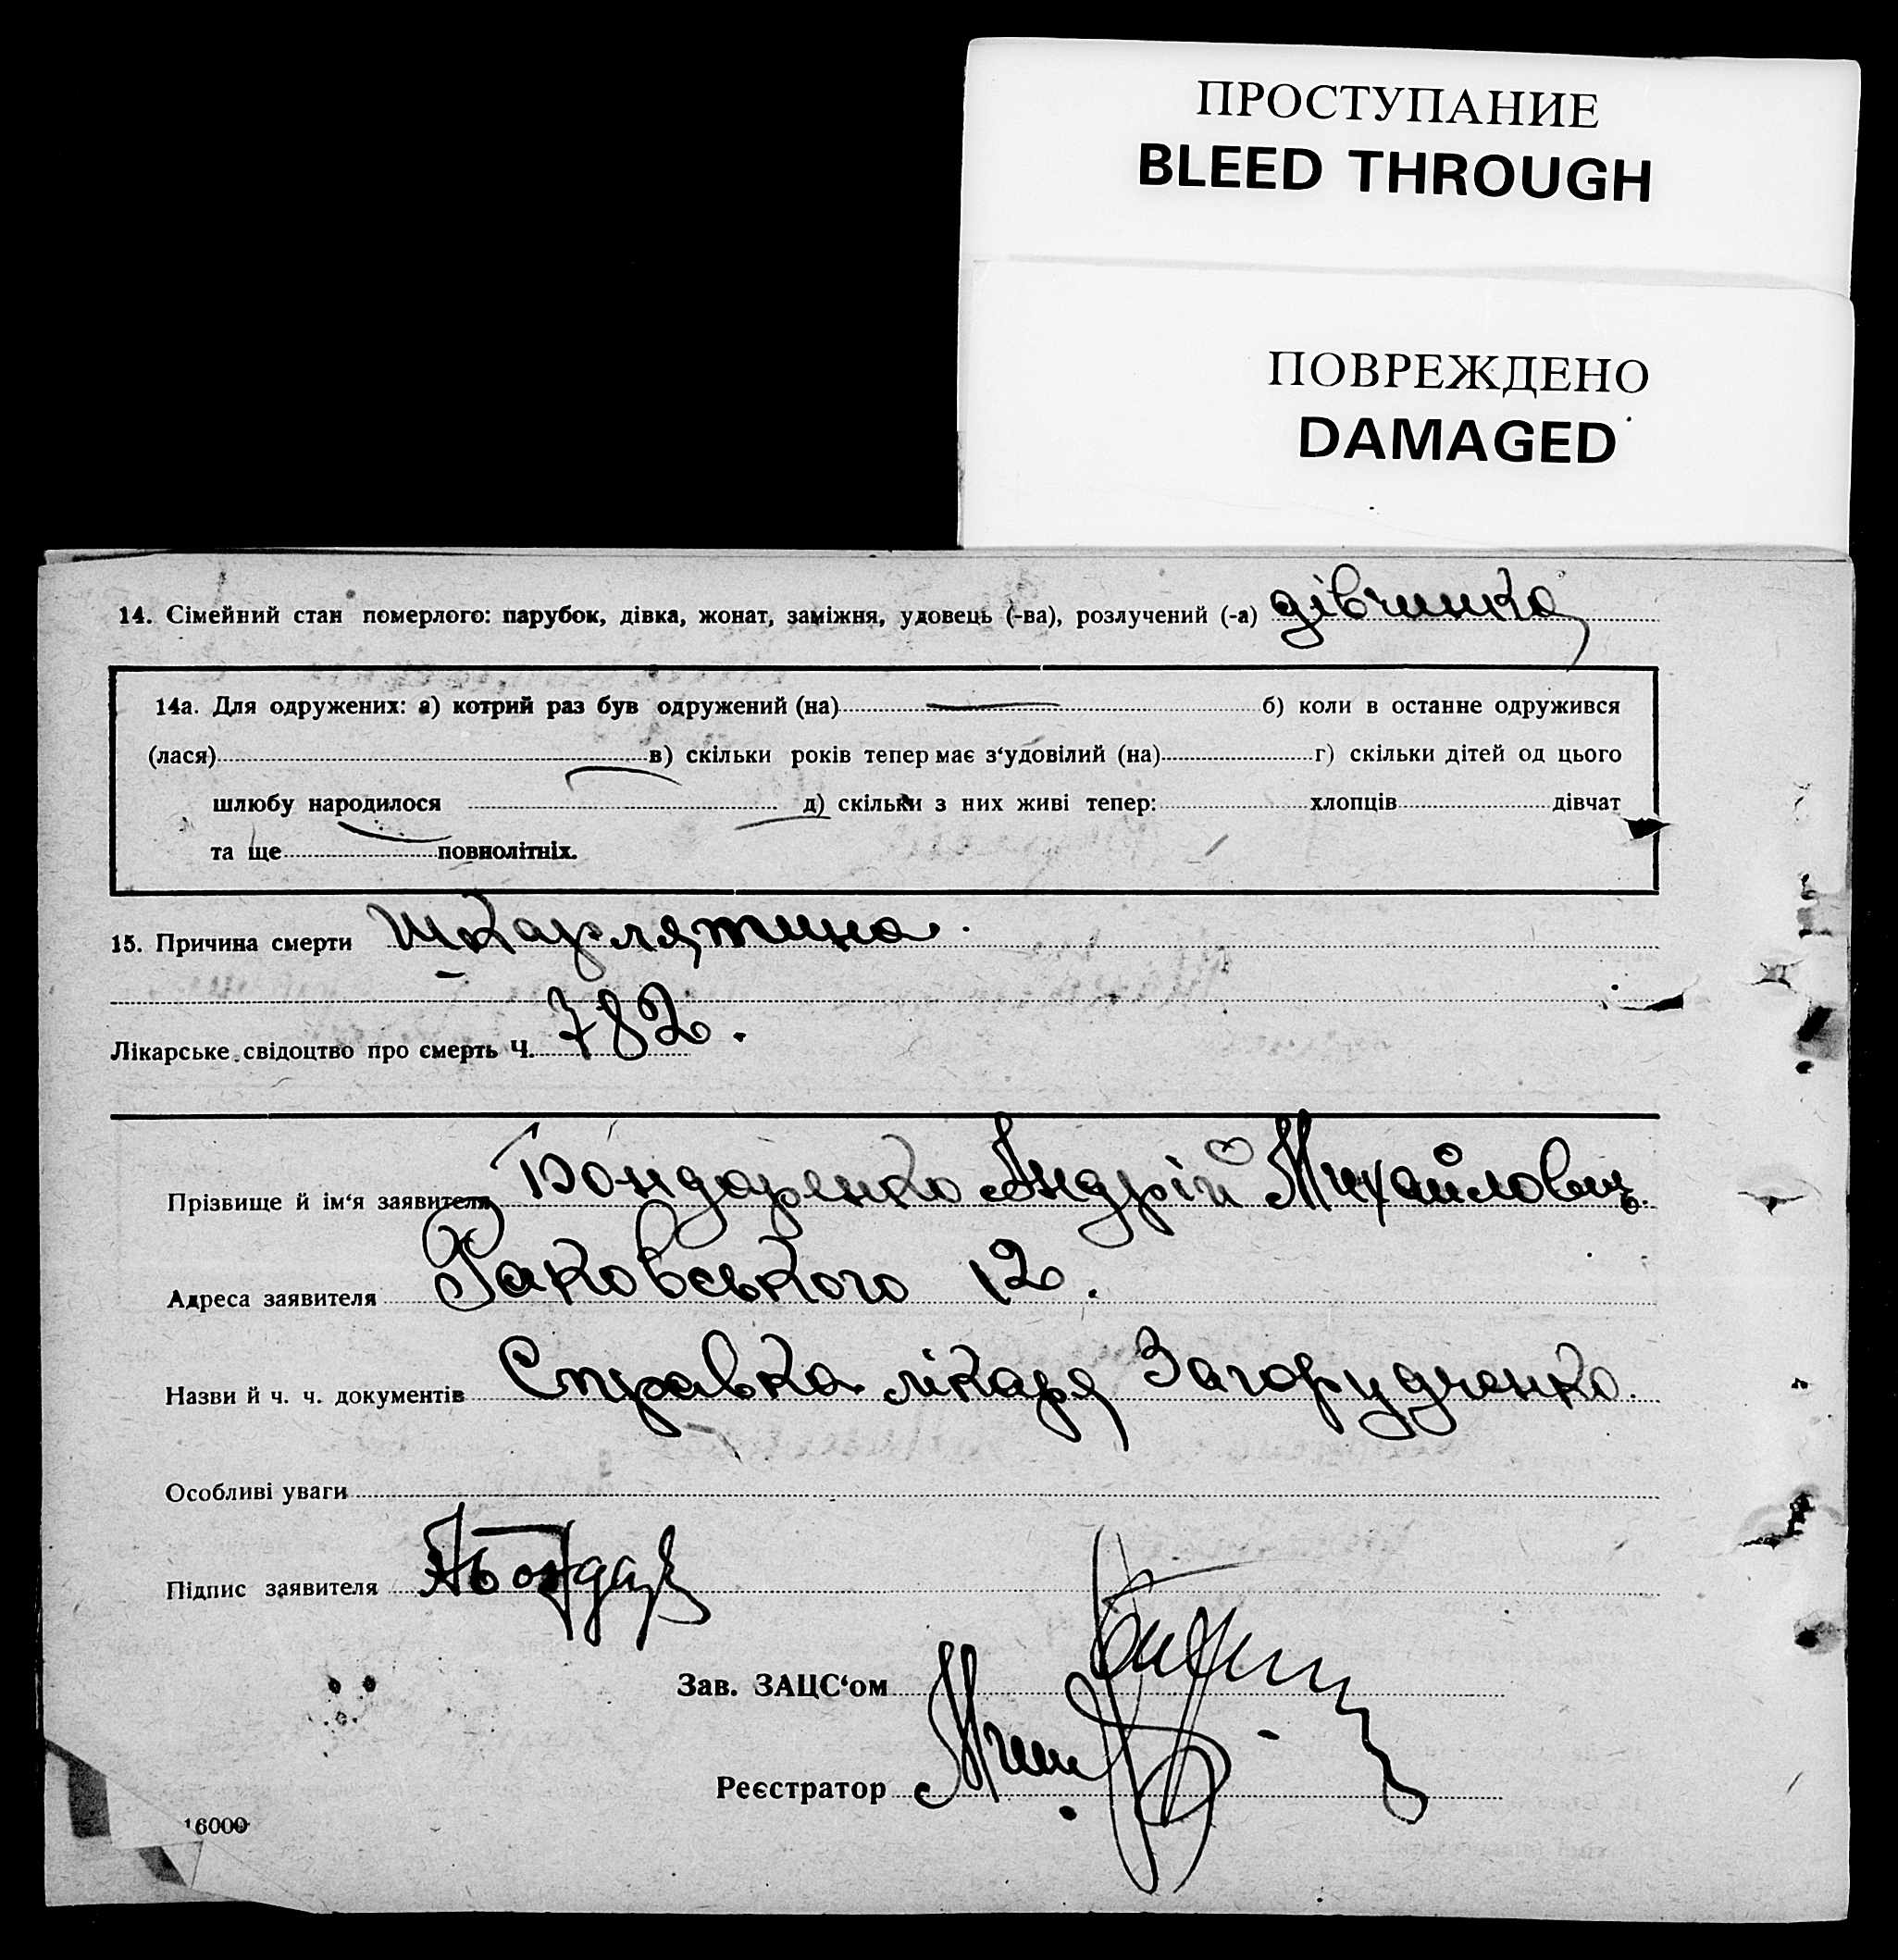 ПРОСТУПАНИЕ
BLEED THROUGH
ПОВРЕЖДЕНО
DAMAGED
14. Сімейний стан померлого: парубок, дівка, жонат, заміжня, удовець (-ва), розлучений (-а) дівчинка
14а. Для одружених: а) котрий раз був одружений (на) — б) коли в останне одружився
(лася) в) скільки років тепер має з‘удовілий (на) г) скільки дітей од цього
шлюбу народилося д) скільки з них живі тепер: хлопців дівчат
та ще повнолітніх.
15. Причина смерти Шкарлятина.
Лікарське свідоцтво про смерть Ч. 782.
Прізвище й ім‘я заявителя Бондаренко Андрій Михайлович.
Адреса заявителя Раковського 12.
Назви й ч. ч. документів Справка лікаря Загорудченко.
Особливі уваги
Підпис заявителя АБондар
Зав. ЗАЦС‘ом
Реєстратор
16000